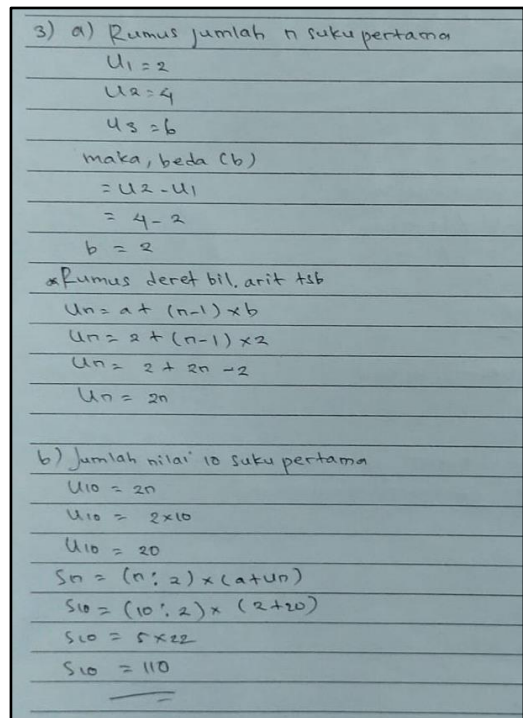 3) a) Rumus jumlah n suku pertama
U1 = 2
U2 = 4
U3 = 6
maka, beda (b)
= U2 - U1
= 4 - 2
b = 2
* Rumus deret bil. arit tsb
Un = a + (n-1) x b
Un = 2 + (n-1) x 2
Un = 2 + 2n - 2
Un = 2n
b) Jumlah nilai 10 suku pertama
U10 = 2n
U10 = 2x10
U10 = 20
Sn = (n : 2) x (a+Un)
S10 = (10 : 2) x (2+20)
S10 = 5 x 22
S10 = 110